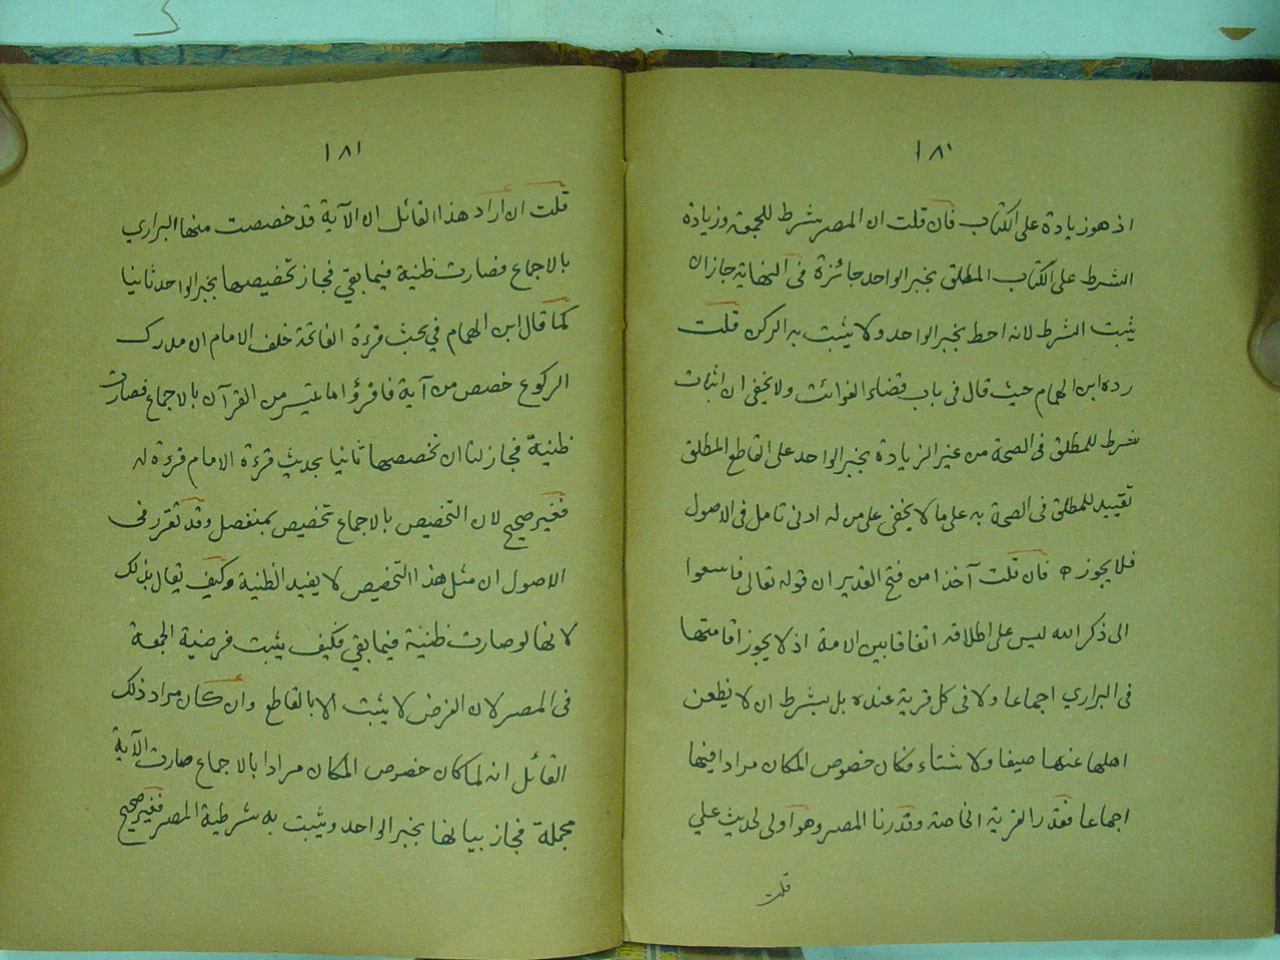 ١٨٠
اذ هو زيادة على الكتاب فان قلت ان المصر شرط للجمعة وزيادة
الشرط على الكتاب المطلق بخبر الواحد جائزة فى النهاية جاز ان
يثبت الشرط لانه احط بخبر الواحد ولا يثبت به الركن قلت
رده ابن الهمام حيث قال فى باب قضاء الفوائت ولا يخفى ان اثبات
شرط للمطلق فى الصحة من غير الزيادة بخبر الواحد على القاطع المطلق
تقييد للمطلق فى الصحة به على ما لا يخفى على من له ادنى تامل فى الاصول
فلا يجوز ه فان قلت آخذا من فتح القدير ان قوله تعالى فاسعوا
الى ذكر الله ليس على اطلاقه اتفاقا بين الامة اذ لا يجوز اقامتها
فى البراري اجماعا ولا فى كل قرية عنده بل بشرط ان لا يظعن
اهلها عنها صيفا ولا شتاء فكان خصوص المكان مرادا فيها
اجماعا فقدر القرية الخاصة وقدرنا المصر وهو اولى لحديث علي
قلت
١٨١
قلت ان اراد هذا القائل ان الآية قد خصصت منها البراري
بالاجماع فصارت ظنية فيما بقي فجاز تخصيصها بخبر الواحد ثانيا
كما قال ابن الهمام في بحث قرءة الفاتحة خلف الامام ان مدرك
الركوع خصص من آية فاقرؤا ما تيسر من القرآن بالاجماع فصارت
ظنية فجاز لنا ان نخصصها ثانيا بحديث قرءة الامام قرءة له
فغير صحيح لان التخصيص بالاجماع تخصيص بمنفصل وقد تقرر فى
الاصول ان مثل هذا التخصيص لا يفيد الظنية وكيف يقال بذلك
لانها لو صارت ظنية فيما بقي فكيف يثبت فرضية الجمعة
فى المصر لان الفرض لا يثبت الا بالقاطع وان كان مراد ذلك
القائل انه لما كان خصوص المكان مرادا بالاجماع صارت الآية
مجملة فجاز بيانها بخبر الواحد ويثبت به شرطية المصر فغير صحيح